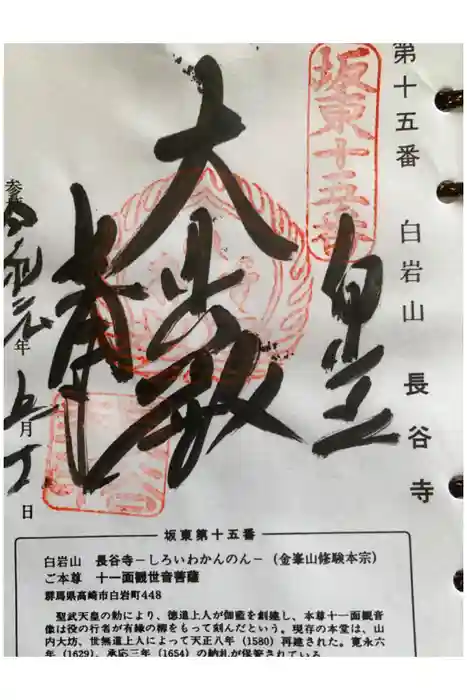 第十五番 白岩山 長谷寺
坂東十五番
大悲殿
参拝
令和元年五月一日
坂東第十五番
白岩山 長谷寺－しろいわかんのん－（金峯山修験本宗）
ご本尊 十一面観世音菩薩
群馬県高崎市白岩町448
聖武天皇の勅により、徳道上人が伽藍を創建し、本尊十一面観音
像は役の行者が有縁の柳をもって刻んだという。現存の本堂は、山
内大坊、世無道上人によって天正八年（1580）再建された。寛永六
年（1629）、承応三年（1654）の納札が保管されている。